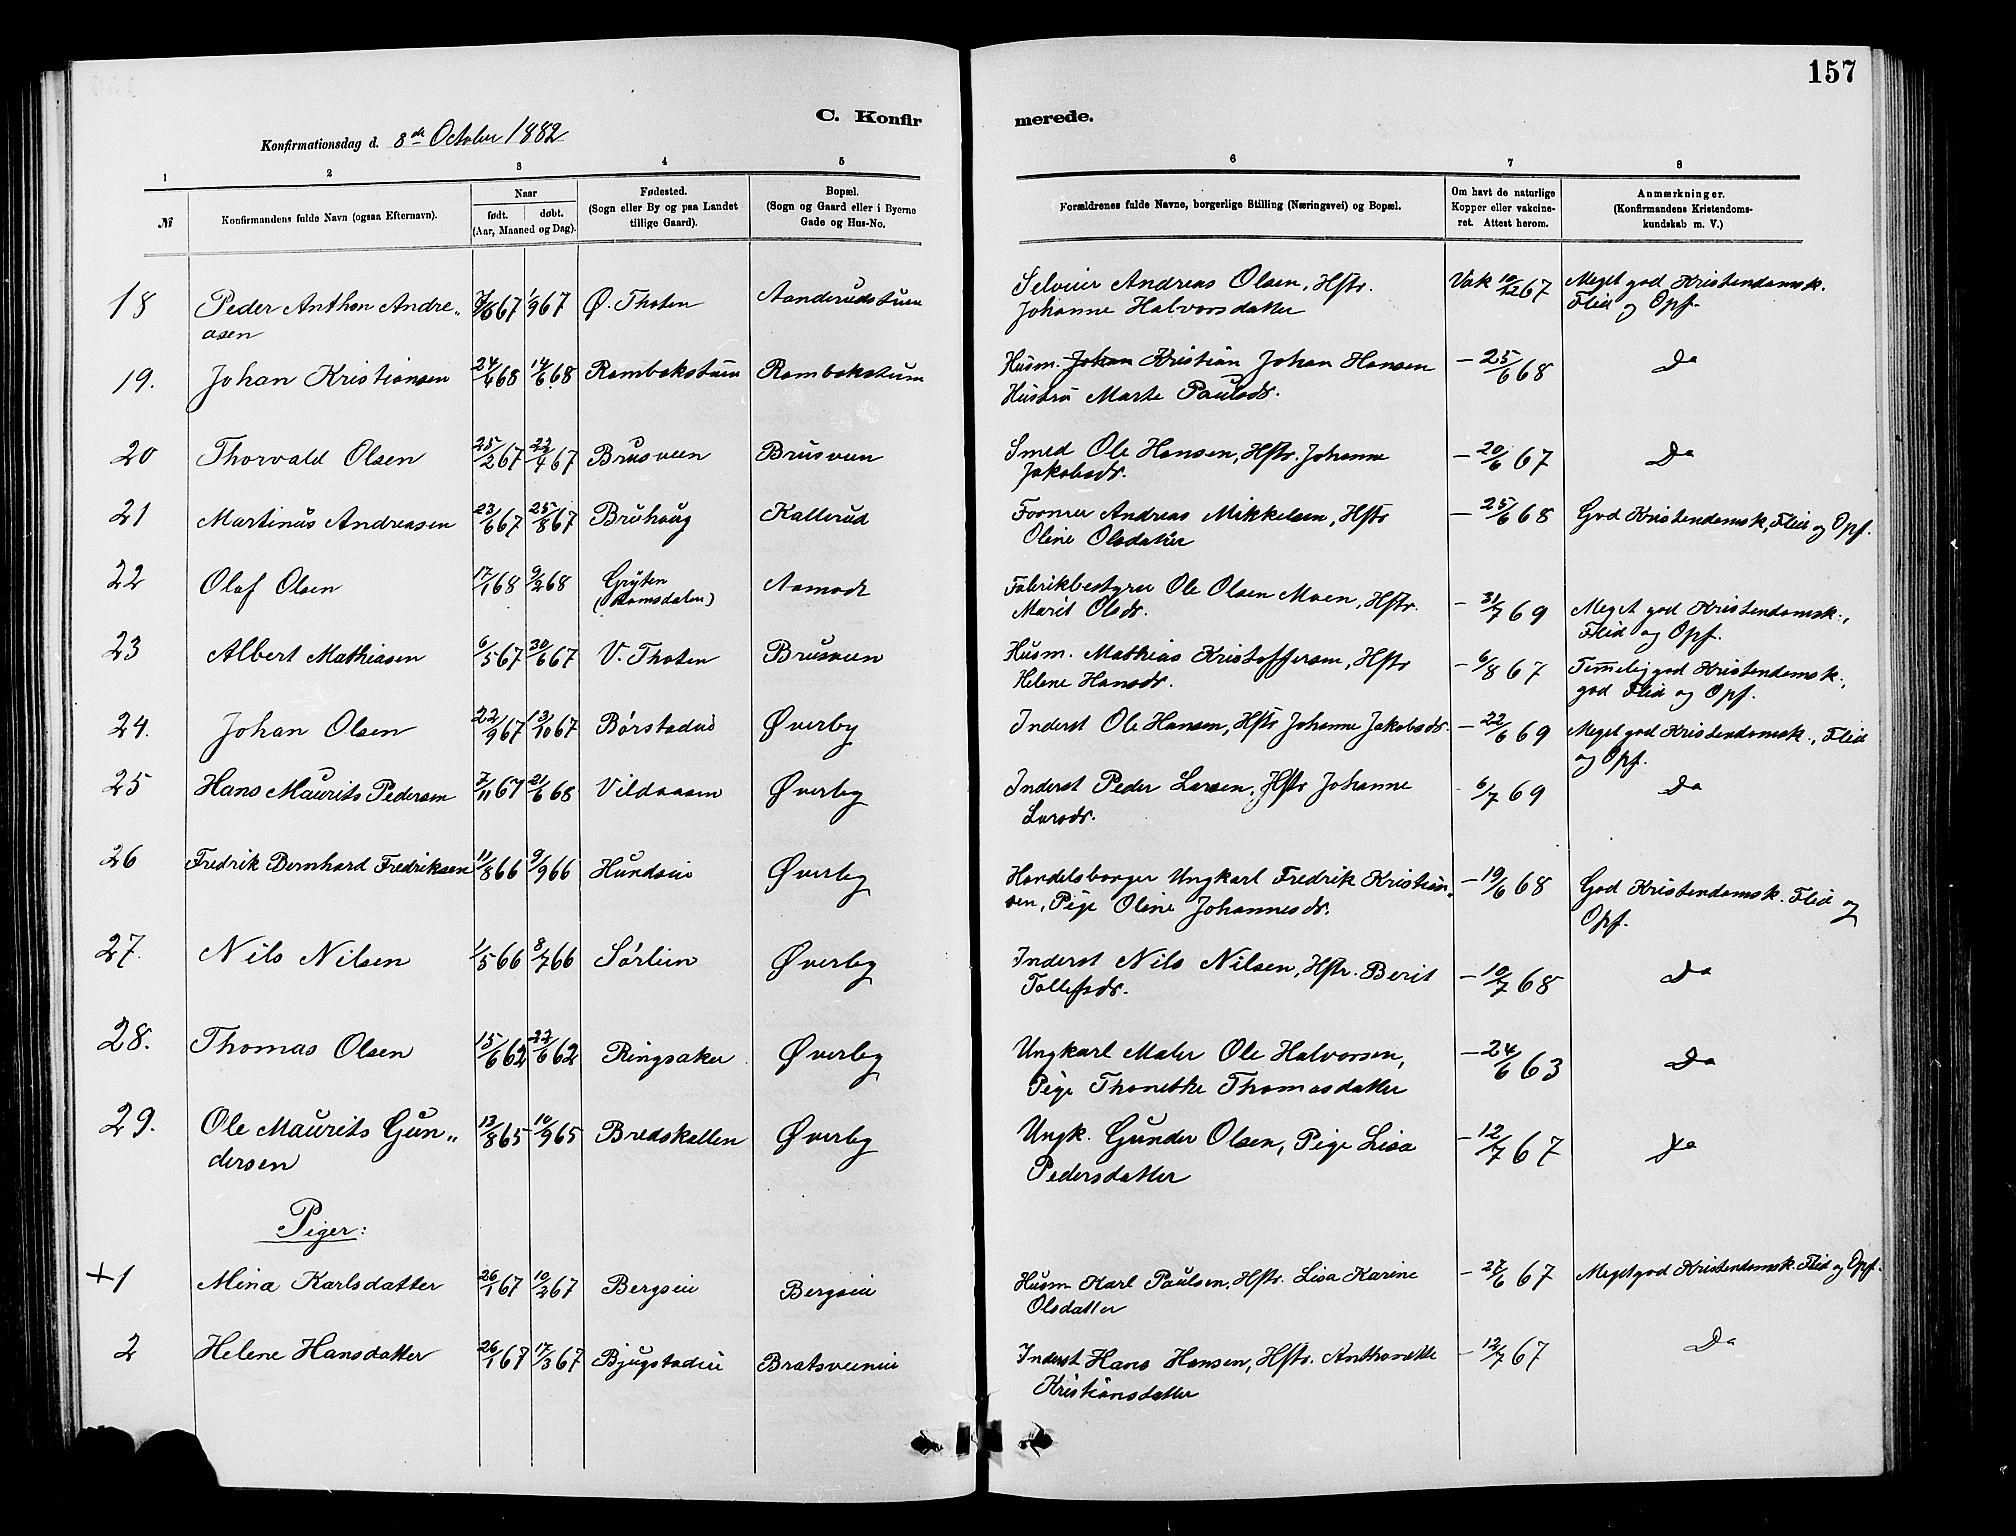 157
C. Konfir merede.
Konfirmationsdag d. 8de October 1882
1 2 3 4 5 6 7 8
№
Konfirmandens fulde Navn (ogsaa Efternavn).
Naar
født. døbt.
(Aar, Maaned og Dag).
Fødested.
(Sogn eller By og paa Landet
tillige Gaard).
Bopæl.
(Sogn og Gaard eller i Byerne
Gade og Hus-No.
Forældrenes fulde Navne, borgerlige Stilling (Næringsvei) og Bopæl.
Om havt de naturlige
Kopper eller vakcine-
ret. Attest herom.
Anmærkninger.
(Konfirmandens Kristendoms-
kundskab m. V.)
18 Peder Anthon Andre„ 7/8 67 1/9 67 Ø. Thoten Aanderudstuen Selveier Andreas Olsen, Hstr. Vak 10/12 67 Meget god Kristendomsk.
asen Johanne Halvorsdatter Flid og Opf.
19. Johan Kristiansen 24/4 68 14/6 68 Rambekstuen Rambekstuen Husm. Johan Kristian Johan Hansen – 25/6 68 Do
Hustru Marte Paulsdr.
20 Thorvald Olsen 25/2 67 22/4 67 Brusveen Brusveen Smed Ole Hansen, Hstr. Johanne – 20/6 67 Do
Jakobsdr.
21 Martinus Andreasen 23/6 67 25/8 67 Bruhaug Kallerud Former Andreas Mikkelsen, Hstr – 25/6 68 God Kristendomsk, Flid og Opf.
Oline Olsdatter
22 Olaf Olsen 17/1 68 9/2 68 Gryten Aamodt Fabrikbestyrer Ole Olsen Moen, Hstr. – 31/7 69 Meget god Kristendomsk.,
(Romsdalen) Marit Olsdr. Flid og Opf.
23 Albert Mathiasen 6/5 67 30/6 67 V. Thoten Brusveen Husm. Mathias Kristoffersen, Hstr – 6/8 67 Temmelig god Kristendomsk.,
Helene Hansdr. god Flid og Opf.
24. Johan Olsen 22/9 67 13/10 67 Børstadud Øverby Inderst Ole Hansen, Hstr Johanne Jakobsdr. – 22/6 69 Meget god Kristendomsk., Flid
og Opf.
25 Hans Maurits Pedersen 7/11 67 21/6 68 Vildaasen Øverby Inderst Peder Larsen, Hstr Johanne 6/7 69 Do
Larsdr.
26 Fredrik Bernhard Fredriksen 11/8 66 9/9 66 Hundseie Øverby Handelsborger Ungkarl Fredrik Kristian„ – 19/6 68 God Kristendomsk. Flid og
sen, Pige Oline Johannesdr. Opf.
27. Nils Nilsen 1/5 66 8/7 66 Sørlien Øverby Inderst Nils Nilsen, Hstr. Berit – 10/7 68 Do
Tollefsdr.
28. Thomas Olsen 15/6 62 22/6 62 Ringsaker Øverby Ungkarl Maler Ole Halvorsen, – 24/6 63 Do
Pige Thonette Thomasdatter
29. Ole Maurits Gun„ 13/8 65 10/9 65 Bredskallen Øverby Ungk. Gunder Olsen, Pige Lisa – 12/7 67 Do
dersen Pedersdatter
Piger:
+1 Mina Karlsdatter 26/1 67 10/2 67 Bergseie Bergseie Husm Karl Paulsen, Hstr. Lisa Karine – 27/6 67 Meget god Kristendomsk. Flid og Opf.
Olsdatter
2 Helene Hansdatter 26/1 67 17/3 67 Bjugstadeie Bratsveeneie Inderst Hans Hansen, Hstr. Anthonette – 12/7 67 Do
Kristiansdatter